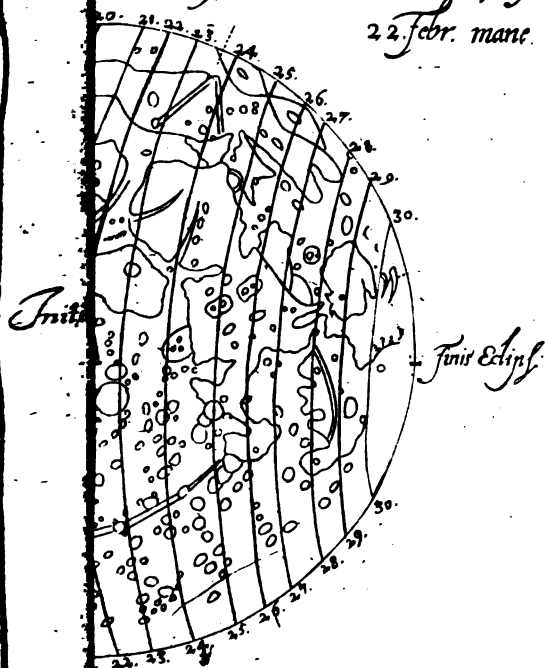 22 Febr. mane
20. 21. 22. 23. 24. 25. 26. 27. 28. 29. 30.
Initi
Finis Eclips.
30.
29.
28.
27.
26.
25.
24.
23.
22.